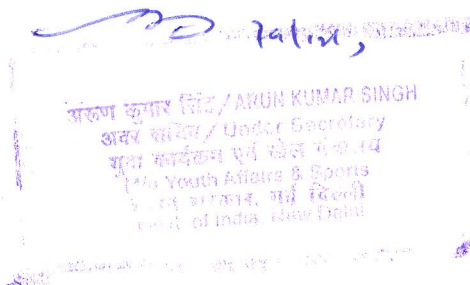 अरूण कुमार सिंह / ARUN KUMAR SINGH
अवर सचिव / Under Secretary
युवा कार्यक्रम एवं खेल मंत्रालय
Youth Affairs & Sports
भारत सरकार, नई दिल्ली
Govt. of India, New Delhi